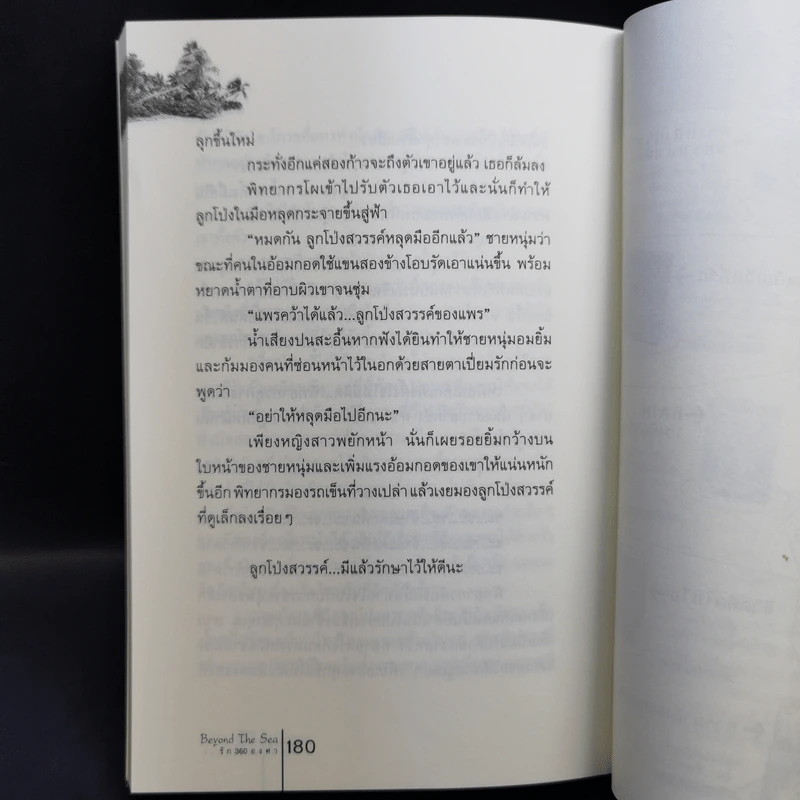 ลุกขึ้นใหม่
กระทั่งอีกแค่สองก้าวจะถึงตัวเขาอยู่แล้ว เธอก็ล้มลง
พิทยากรโผเข้าไปรับตัวเธอเอาไว้และนั่นก็ทำให้
ลูกโป่งในมือหลุดกระจายขึ้นสู่ฟ้า
“หมดกัน ลูกโป่งสวรรค์หลุดมืออีกแล้ว” ชายหนุ่มว่า
ขณะที่คนในอ้อมกอดใช้แขนสองข้างโอบรัดเอาแน่นขึ้น พร้อม
หยาดน้ำตาที่อาบผิวเขาจนชุ่ม
“แพรคว้าได้แล้ว...ลูกโป่งสวรรค์ของแพร”
น้ำเสียงปนสะอื้นหากฟังได้ยินทำให้ชายหนุ่มอมยิ้ม
และก้มมองคนที่ซ่อนหน้าไว้ในอกด้วยสายตาเปี่ยมรักก่อนจะ
พูดว่า
“อย่าให้หลุดมือไปอีกนะ”
เพียงหญิงสาวพยักหน้า นั่นก็เผยรอยยิ้มกว้างบน
ใบหน้าของชายหนุ่มและเพิ่มแรงอ้อมกอดของเขาให้แน่นหนัก
ขึ้นอีก พิทยากรมองรถเข็นที่วางเปล่า แล้วเงยมองลูกโป่งสวรรค์
ที่ดูเล็กลงเรื่อยๆ
ลูกโป่งสวรรค์...มีแล้วรักษาไว้ให้ดีนะ
Beyond The Sea
รัก 360 องศา
180